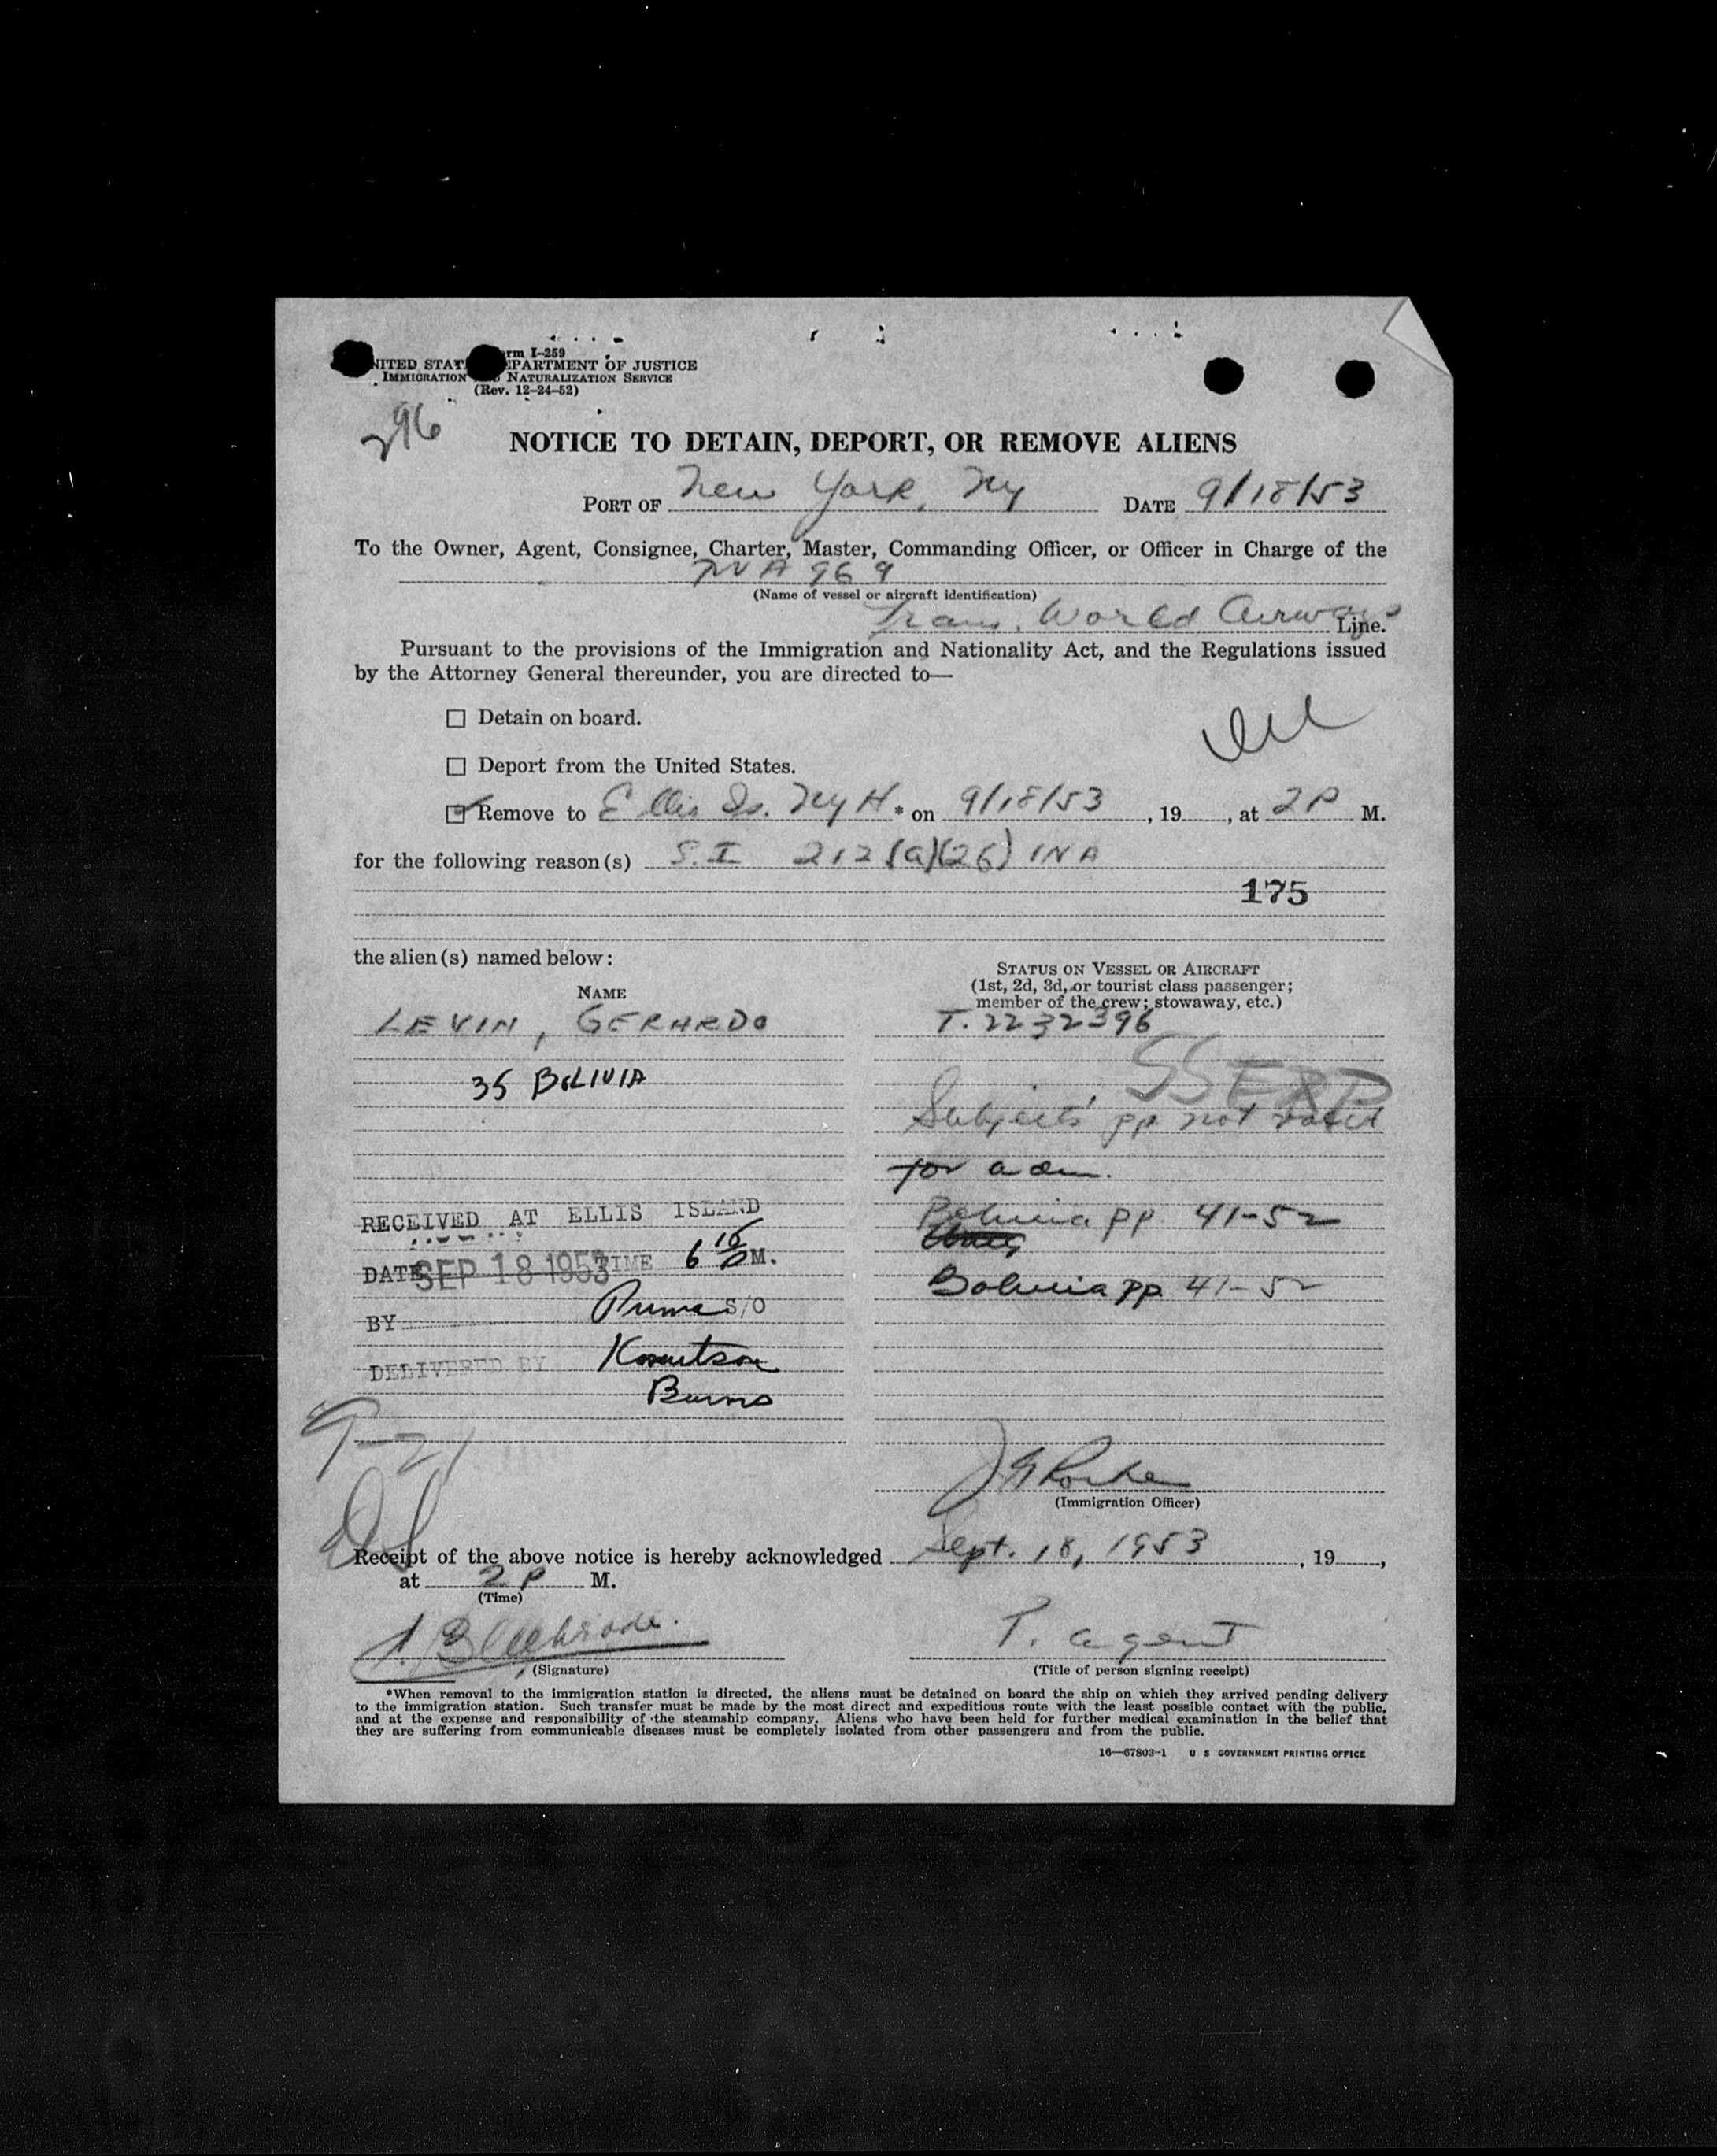 Form I-259
UNITED STATES DEPARTMENT OF JUSTICE
IMMIGRATION AND NATURALIZATION SERVICE
(Rev. 12-24-52)
296
NOTICE TO DETAIN, DEPORT, OR REMOVE ALIENS
PORT OF New York, NY DATE 9/18/53
To the Owner, Agent, Consignee, Charter, Master, Commanding Officer, or Officer in Charge of the
TWA 969
(Name of vessel or aircraft identification)
Trans. World Airways Line.
Pursuant to the provisions of the Immigration and Nationality Act, and the Regulations issued
by the Attorney General thereunder, you are directed to—
☐ Detain on board.
☐ Deport from the United States.
☑ Remove to Ellis Is. NYH* on 9/18/53, 19, at 2P M.
for the following reason(s) S.I 212(a)(26) INA
175
the alien(s) named below:
STATUS ON VESSEL OR AIRCRAFT
(1st, 2d, 3d, or tourist class passenger;
member of the crew; stowaway, etc.)
NAME
LEVIN, GERARDO T. 2232396
35 BOLIVIA
Subject's pp not valid
for adm.
Bolivia pp. 41-52
Bolivia pp. 41-52
RECEIVED AT ELLIS ISLAND
DATE SEP 18 1953 TIME 6 10 P M.
BY S/O
DELIVERED BY Knutson
Burns
9-21
(Immigration Officer)
Receipt of the above notice is hereby acknowledged Sept. 18, 1953, 19,
at 2P M.
(Time)
T. agent
(Signature) (Title of person signing receipt)
*When removal to the immigration station is directed, the aliens must be detained on board the ship on which they arrived pending delivery
to the immigration station. Such transfer must be made by the most direct and expeditious route with the least possible contact with the public,
and at the expense and responsibility of the steamship company. Aliens who have been held for further medical examination in the belief that
they are suffering from communicable diseases must be completely isolated from other passengers and from the public.
16—67803-1 U S GOVERNMENT PRINTING OFFICE